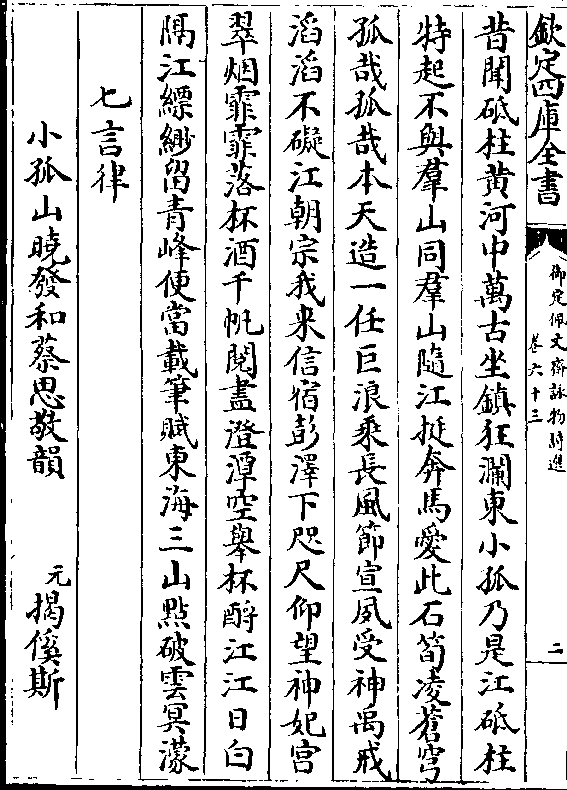 欽定四庫全書
御定佩文齋詠物詩選
卷六十三
二
昔聞砥柱黄河中萬古坐鎮狂瀾東小孤乃是江砥柱
特起不與羣山同羣山隨江挺奔馬愛此石筍凌蒼穹
孤哉孤哉本天造一任巨浪乘長風節宣夙受神禹戒
滔滔不礙江朝宗我來信宿彭澤下咫尺仰望神妃宫
翠烟霏霏落杯酒千帆閱盡澄潭空舉杯酹江江日白
隔江縹緲留青峰便當載筆賦東海三山點破雲冥濛
七言律
小孤山曉發和蔡思敬韻
元揭傒斯